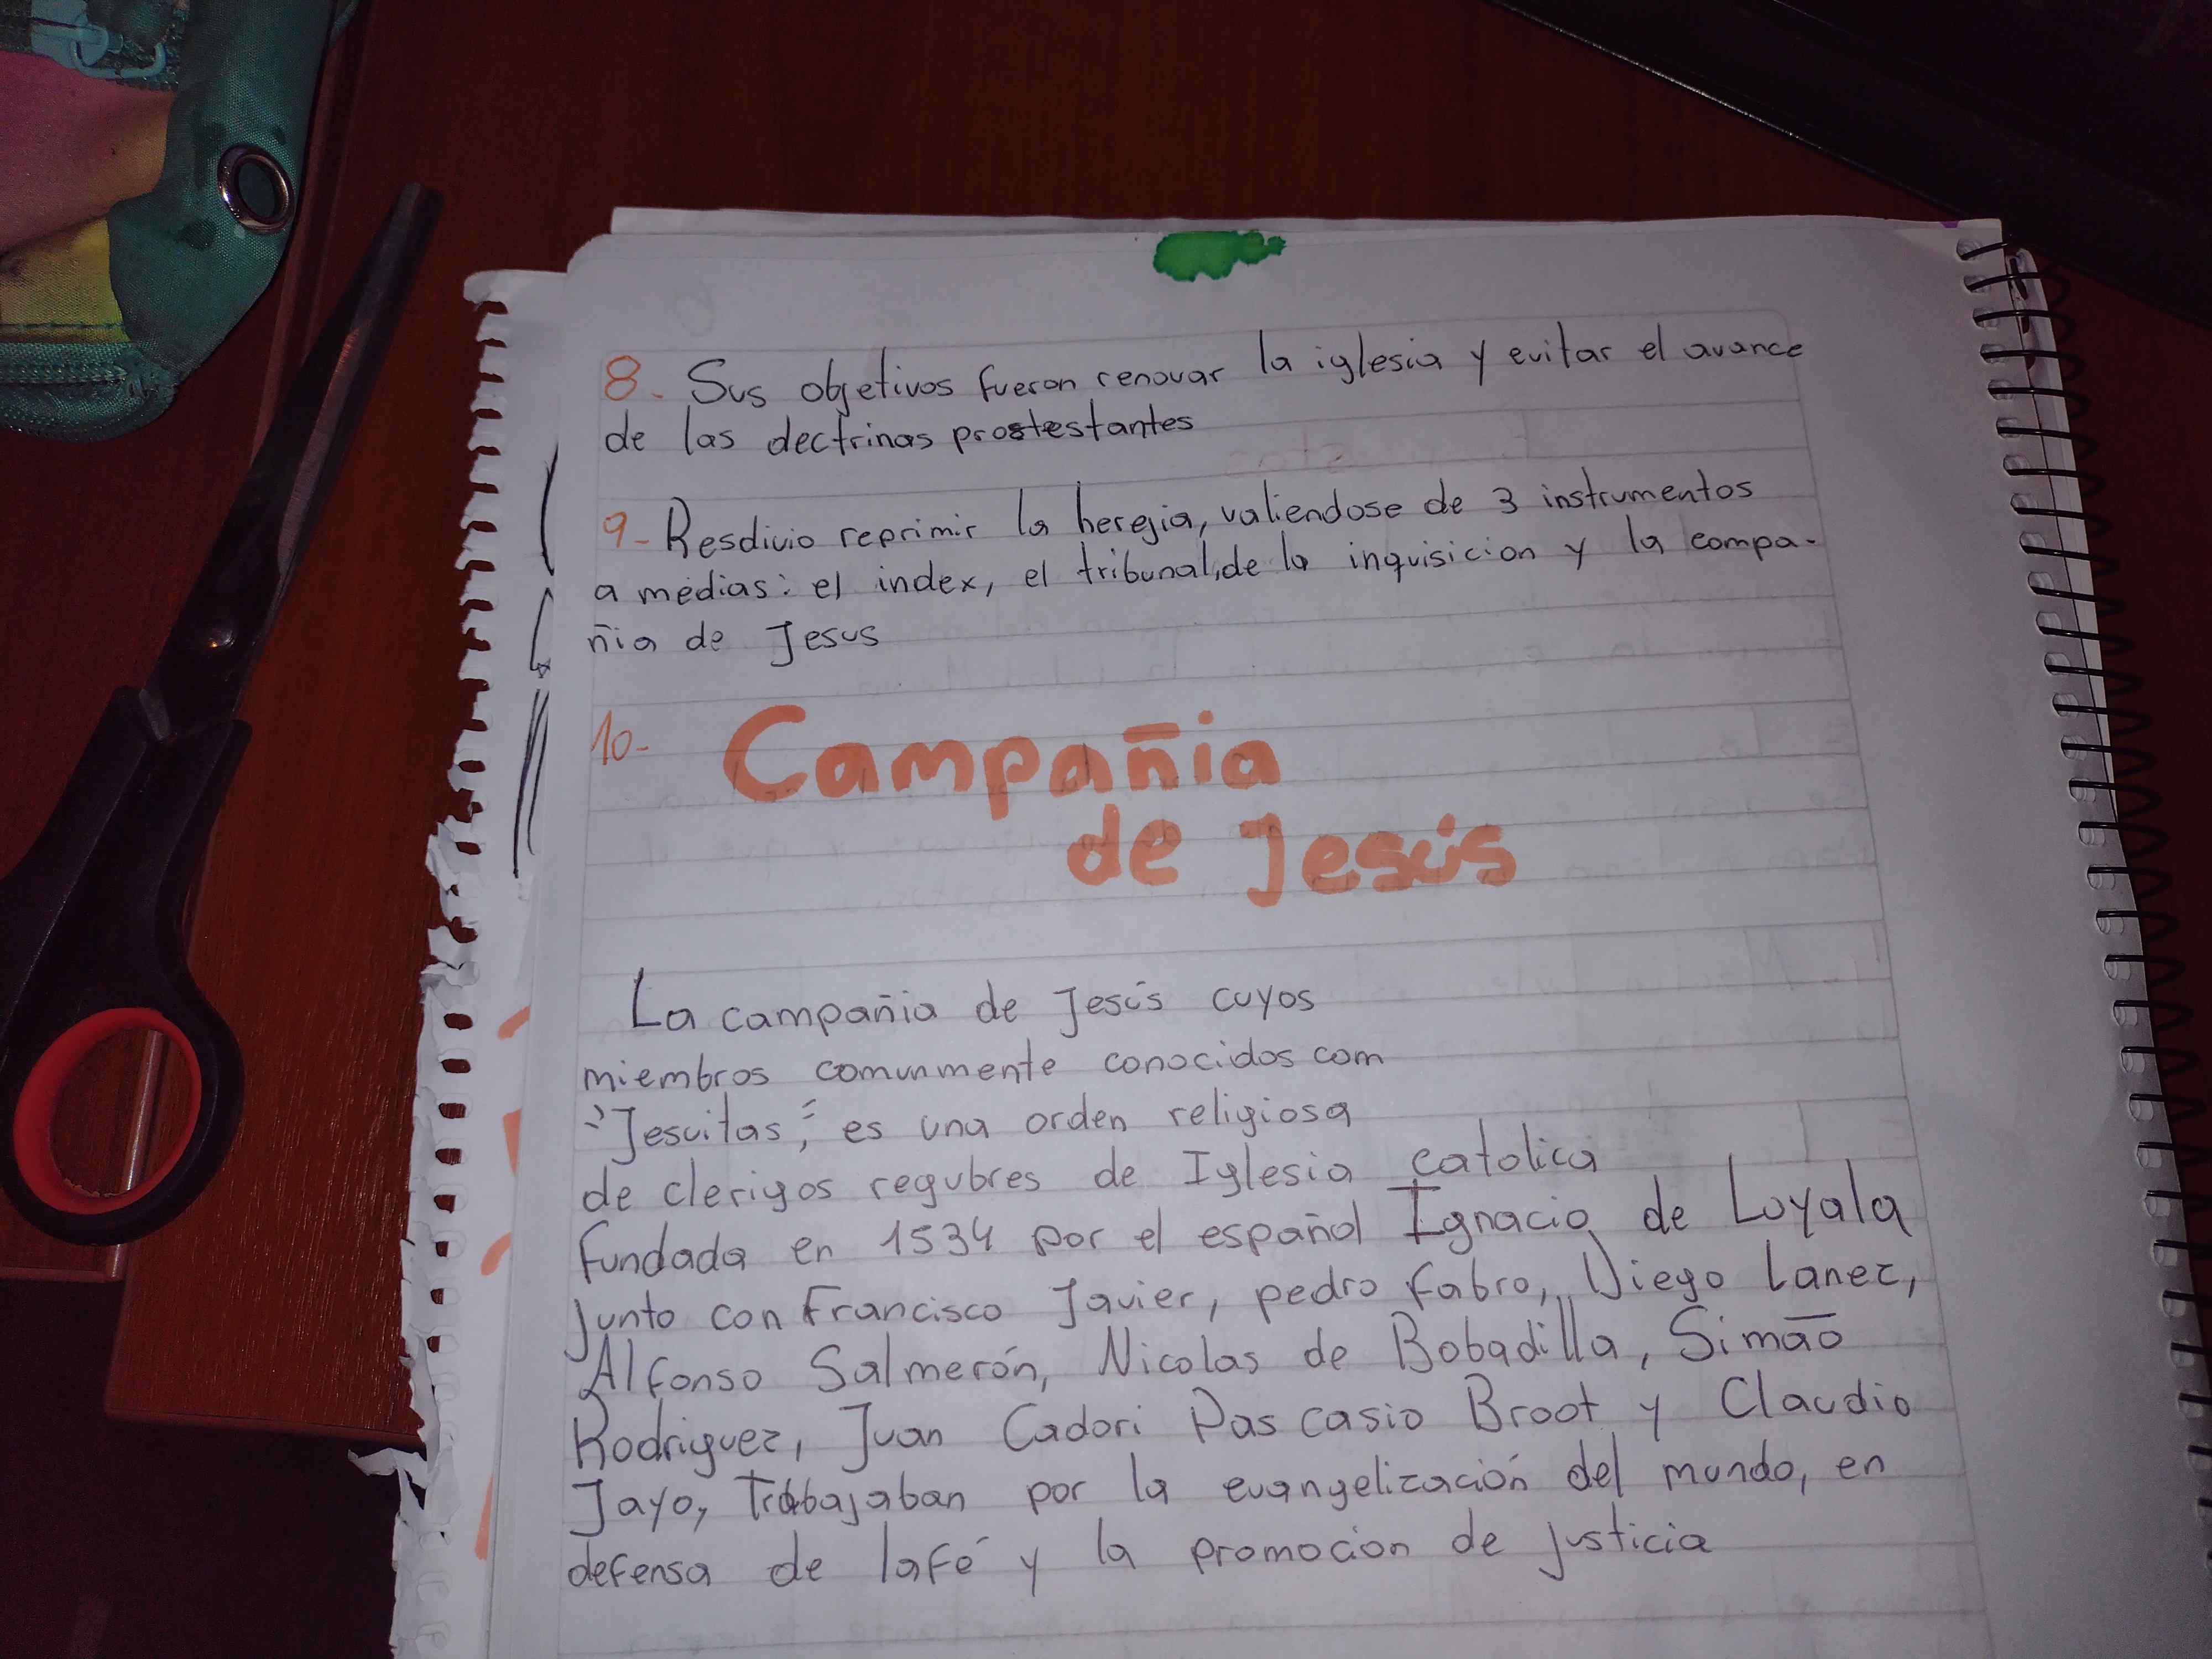 8. Sus objetivos fueron renovar la iglesia y evitar el avance
de las dectrinas prostestantes
9- Resdivio reprimir la heregia, valiendose de 3 instrumentos
a medias: el index, el tribunal, de la inquisicion y la compa-
ñia de Jesus
10- Campañia
de Jesús
La campañia de Jesús cuyos
miembros comunmente conocidos com
"Jesuitas," es una orden religiosa
de clerigos regubres de Iglesia catolica
fundada en 1534 por el español Ignacio de Loyala
junto con Francisco Javier, pedro fabro, Diego Lanez,
Alfonso Salmerón, Nicolas de Bobadilla, Simão
Rodriguez, Juan Cadori Pas casio Broot y Claudio
Jayo, Trabajaban por la evangelización del mundo, en
defensa de lafé y la promocion de justicia